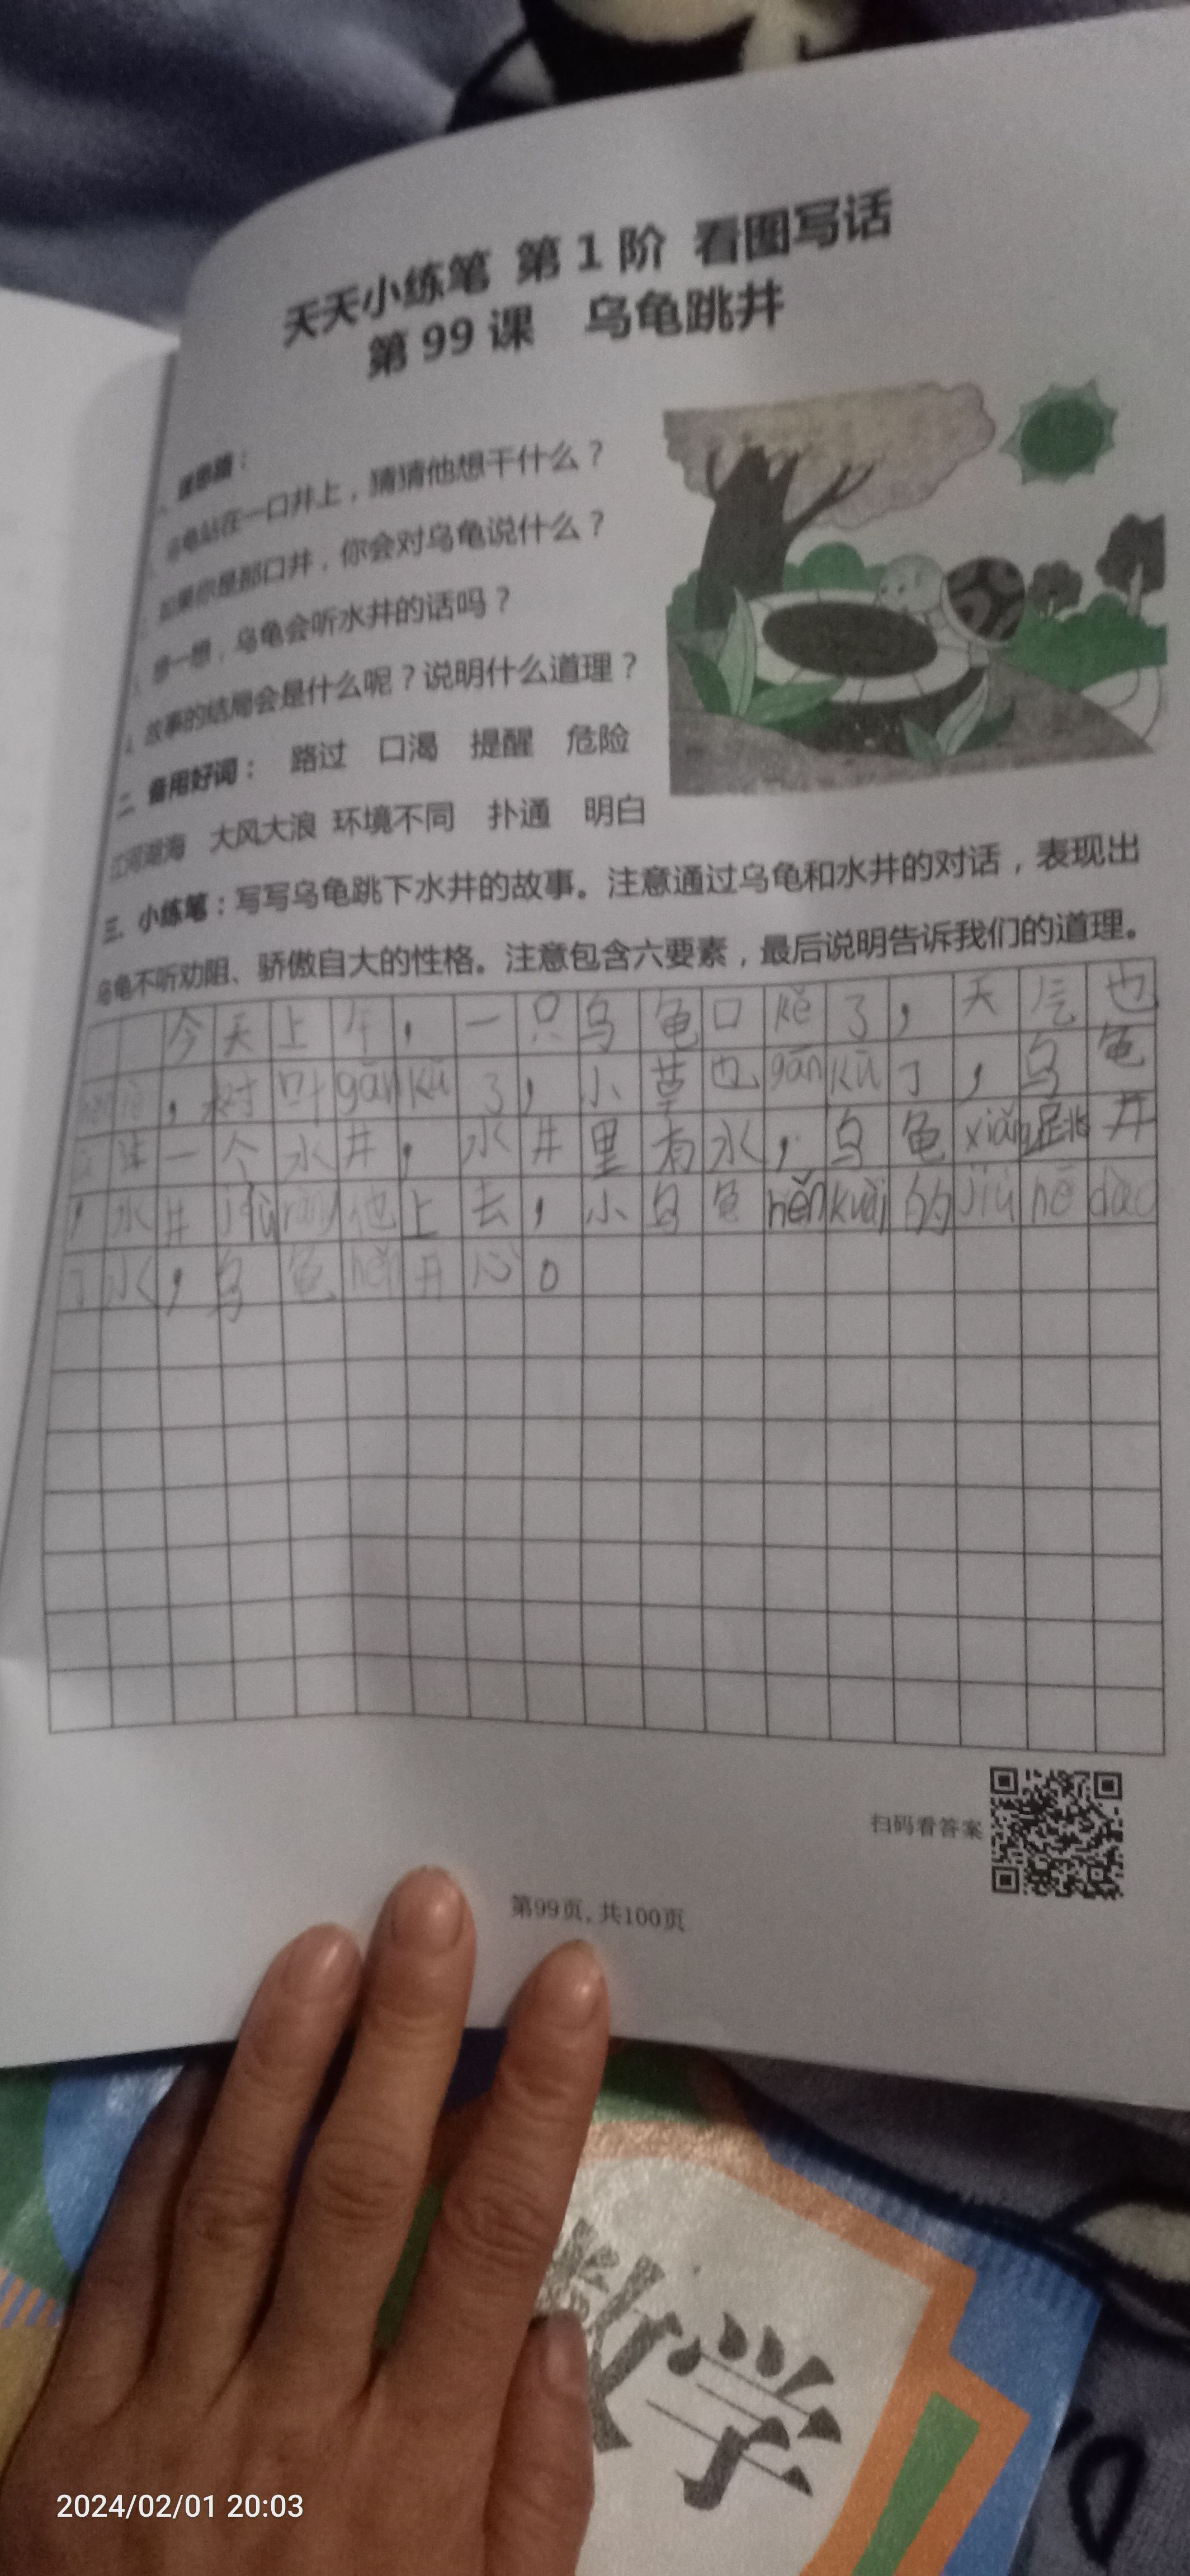 天天小练笔 第1阶 看图写话
第99课 乌龟跳井
乌龟站在一口井上，猜猜他想干什么？
如果你是那口井，你会对乌龟说什么？
想一想，乌龟会听水井的话吗？
故事的结局会是什么呢？说明什么道理？
二 备用好词： 路过 口渴 提醒 危险
江河湖海 大风大浪 环境不同 扑通 明白
三. 小练笔：写写乌龟跳下水井的故事。注意通过乌龟和水井的对话，表现出
乌龟不听劝阻、骄傲自大的性格。注意包含六要素，最后说明告诉我们的道理。
今天上午，一只乌龟口kě了，天气也
，树叶gān kū了，小草也gān kū了，乌龟
一个水井，水井里有水，乌龟xiǎng跳井
，水井jiù ràng他上去，小乌龟hěn kuài的jiù hē dào
了水，乌龟hěn开心。
扫码看答案
第99页, 共100页
数学
2024/02/01 20:03